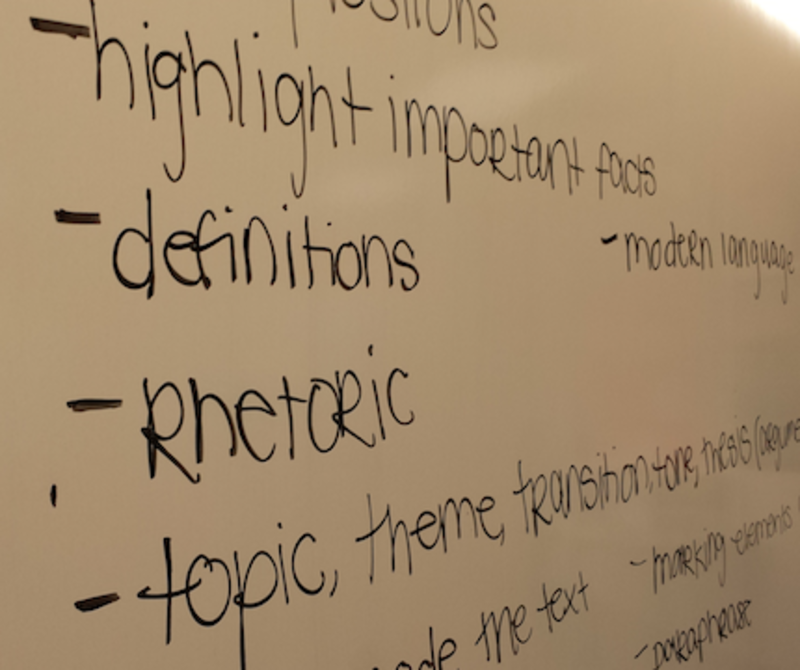 - highlight important facts
- definitions
- modern language
- Rhetoric
- topic, theme, transition, tone, thesis (argume
- marking elements
the text
- paraphrase